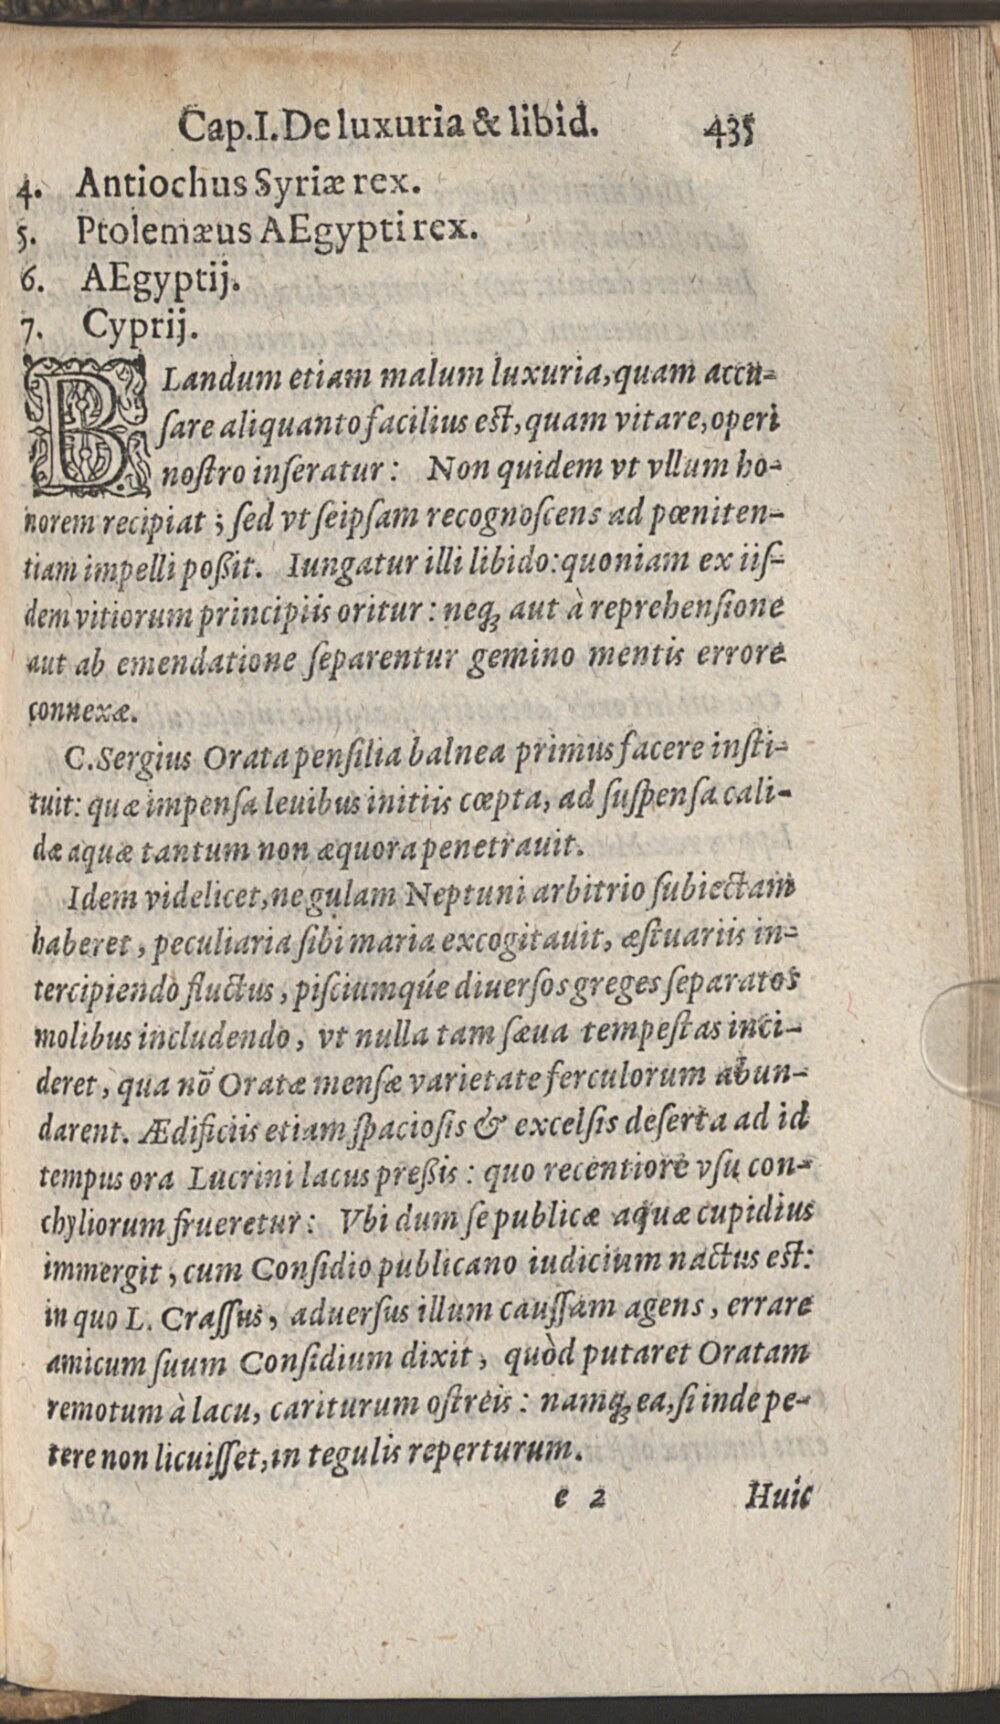 Cap. I. De luxuria & libid. 435
4. Antiochus Syriæ rex.
5. Ptolemæus AEgypti rex.
6. AEgyptij.
7. Cyprij.
BLandum etiam malum luxuria, quam accu-
ſare aliquanto facilius eſt, quam vitare, operi
noſtro inſeratur: Non quidem vt vllum ho-
norem recipiat; ſed vt ſeipſam recognoſcens ad pœniten-
tiam impelli poßit. Iungatur illi libido: quoniam ex iiſ-
dem vitiorum principiis oritur: neqꝫ aut à reprehenſione
aut ab emendatione ſeparentur gemino mentis errore
connexæ.
C. Sergius Orata penſilia balnea primus facere inſti-
tuit: quæ impenſa leuibus initiis cœpta, ad ſuſpenſa cali-
dæ aquæ tantum non æquora penetrauit.
Idem videlicet, ne gulam Neptuni arbitrio ſubiectam
haberet, peculiaria ſibi maria excogitauit, æſtuariis in-
tercipiendo fluctus, piſciumqúe diuerſos greges ſeparatos
molibus includendo, vt nulla tam ſæua tempeſtas inci-
deret, qua nō Oratæ menſæ varietate ferculorum abun-
darent. Ædificiis etiam ſpacioſis & excelſis deſerta ad id
tempus ora Lucrini lacus preßis: quo recentiore vſu con-
chyliorum frueretur: Vbi dum ſe publicæ aquæ cupidius
immergit, cum Conſidio publicano iudicium nactus eſt:
in quo L. Craſſus, aduerſus illum cauſſam agens, errare
amicum ſuum Conſidium dixit, quòd putaret Oratam
remotum à lacu, cariturum oſtreis: namqꝫ ea, ſi inde pe-
tere non licuiſſet, in tegulis reperturum.
e 2 Huic